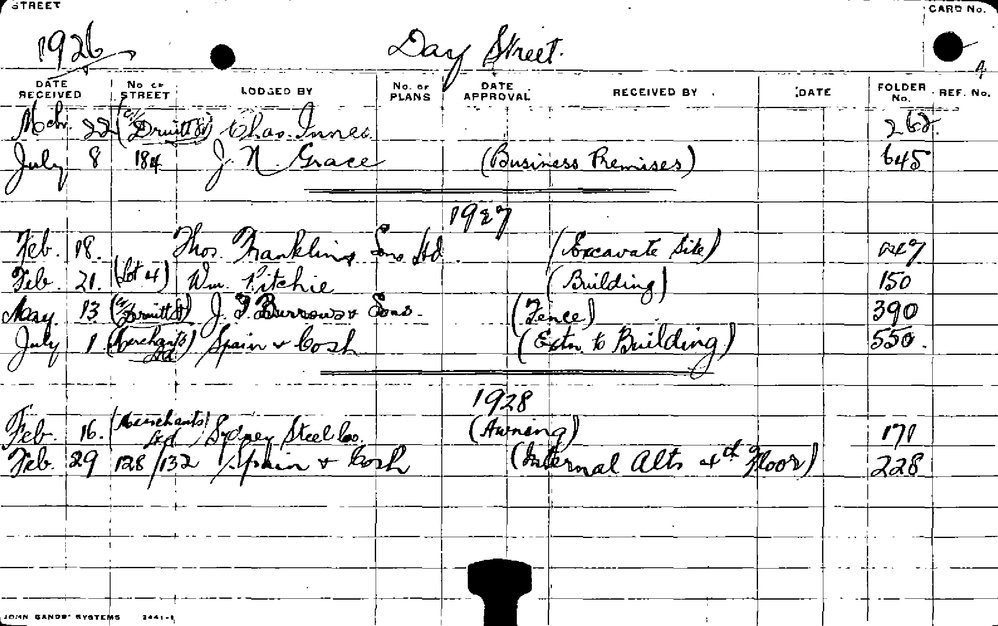 STREET
CARD No.
1926
Day Street.
DATE RECEIVED No OF STREET LODGED BY No. OF PLANS DATE APPROVAL RECEIVED BY DATE FOLDER No. REF. No.
Mch. 22 (c/r Druitt St) Chas. Innes 262.
July 8 184 J. N. Grace (Business Premises) 645
1927
Feb. 18. Thos. Franklins Sons Ltd (Excavate Site) 147
Feb. 21. (Lot 4) Wm. Ritchie (Building) 150
May. 13 (c/r Druitt St) J. F. Burrows & Sons. (Fence) 390
July 1 (Merchants Ltd.) Spain & Cosh (Extn. to Building) 550.
1928
Feb. 16. (Merchants Ltd) Sydney Steel Co. (Awning) 171
Feb. 29 128/132 Spain & Cosh (Internal Alts 4th Floor) 228
JOHN SANDS' SYSTEMS 2441-1